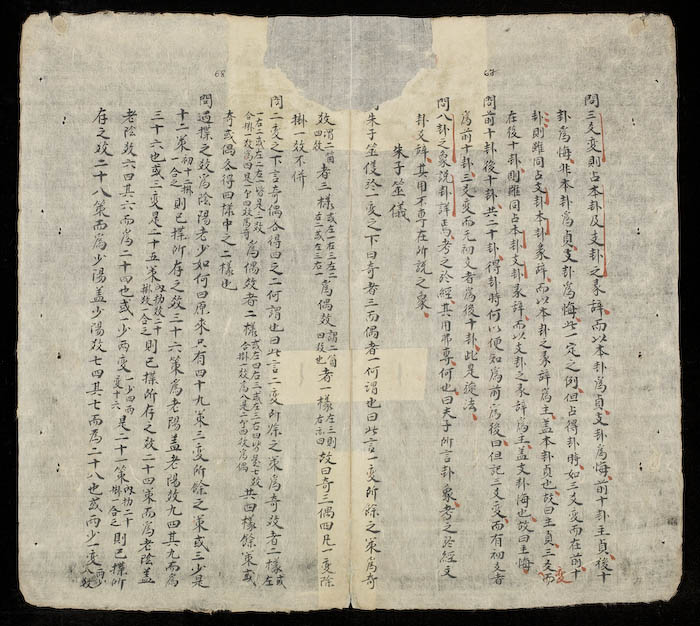 67
問三爻變則占本卦及支卦之彖辭而以本卦爲貞支卦爲悔前十卦主貞後十
卦爲悔非本卦爲貞支卦爲悔此一定之例但占得卦時如三爻變而在前十
卦則雖同占支卦本卦彖辭而以本卦之彖辭爲主盖本卦貞也故曰主貞三爻變而
在後十卦則雖同占本卦支卦彖辭而以支卦之彖辭爲主盖支卦悔也故曰主悔
問前十卦後十卦共二十卦得卦時何以便知爲前爲後曰但記三爻變而有初爻者
爲前十卦三爻變而无初爻者爲後十卦此是捷法
問八卦之象說卦詳焉考之於經其用弗專何也曰夫子所言卦象考之於經文
卦爻辭其用不專在所說之象
朱子筮儀
朱子筮儀於一變之下曰奇者三而偶者一何謂也曰此言一變所餘之策爲奇
68
數謂一箇四數者三樣或左一右三左二右二或左三右一爲偶數謂二箇四數也者一樣左三則右亦四故曰奇三偶四凡一變除
掛一數不併
問二變之下言奇偶各得四之二何謂也曰此言二變所餘之策爲奇數者二樣或左
一右二或左二右一皆是三數合掛一數爲四是一个四故爲奇爲偶數者二樣或左四右三或左三右四皆是七數合掛一數爲八是二个四故爲偶共四樣餘策或
奇或偶各得四樣中之二樣也
問過揲之數爲陰陽老少如何曰原來只有四十九策三變所餘之策或三少是
十二策初十二掛一合之則已揲所存之數三十六策爲老陽盖老陽數九四其九而爲
三十六也或三變是二十五策則已揲所存之數二十四策而爲老陰盖
老陰數六四其六而爲二十四也或少兩變一少四兩變十六是二十一策則已揲所
存之數二十八策而爲少陽盖少陽數七四其七而爲二十八也或兩少一變